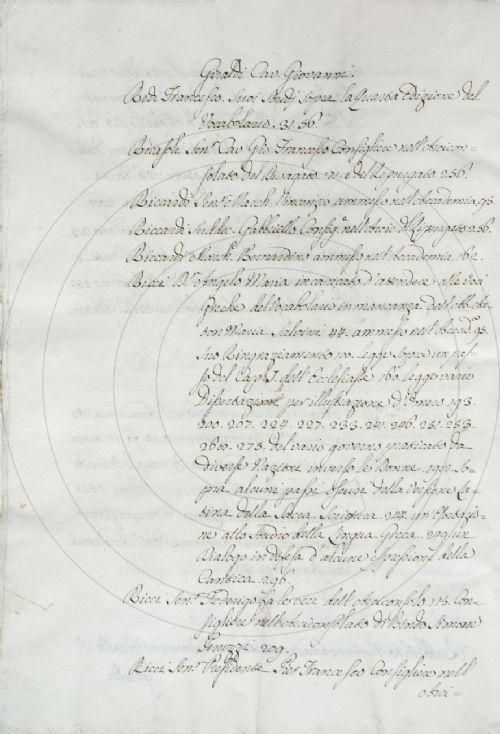 Giraldi Cav. Giovanni.
Redi Francesco. Suoi Studj sopra la Quarta Edizione del
Vocabolario. 31. 56.
Ricasoli Sen.e Cav. Gio. Francesco Consigliere nell' Arcicon-
solato del 256.
Riccardi Sen.e March. Vincenzio ammesso nell' Accademia. 93.
Riccardi Gabbriello Consig.e nell' 256.
Riccardi March. Bernardino ammesso nell' Accademia. 162.
Ricci D.r Angelo Maria incaricato d' attendere alle voci
Greche del Vocabolario in mancanza dell' Abb. Ant-
ton Maria Salvini 44. ammesso nell' Accad.a 93.
suo Ringraziamento 110. legge sopra un pas-
so del Cap. I. dell' Ecclesiaste 160. legge varie
Dissertazioni per illustrazione d' Omero 193.
200. 207. 224. 227. 233. 241. 246. 251. 253.
260. 275. del vario governo praticato da
diverse Nazioni inverso le Donne. so-
pra alcuni passi della Versione La-
tina della Sacra Scrittura 214. un' Esortazio-
ne allo studio della Lingua Greca. un
Dialogo in difesa d' alcune espressioni della
Cantica. 296.
Ricci Sen.e Federigo fa le veci dell' Arciconsolo 115. Con-
sigliere nell' Arciconsolato di Bindo Simone
Peruzzi 209.
Ricci Sen.e Presidente Pier Francesco Consigliere nell'
Arci-